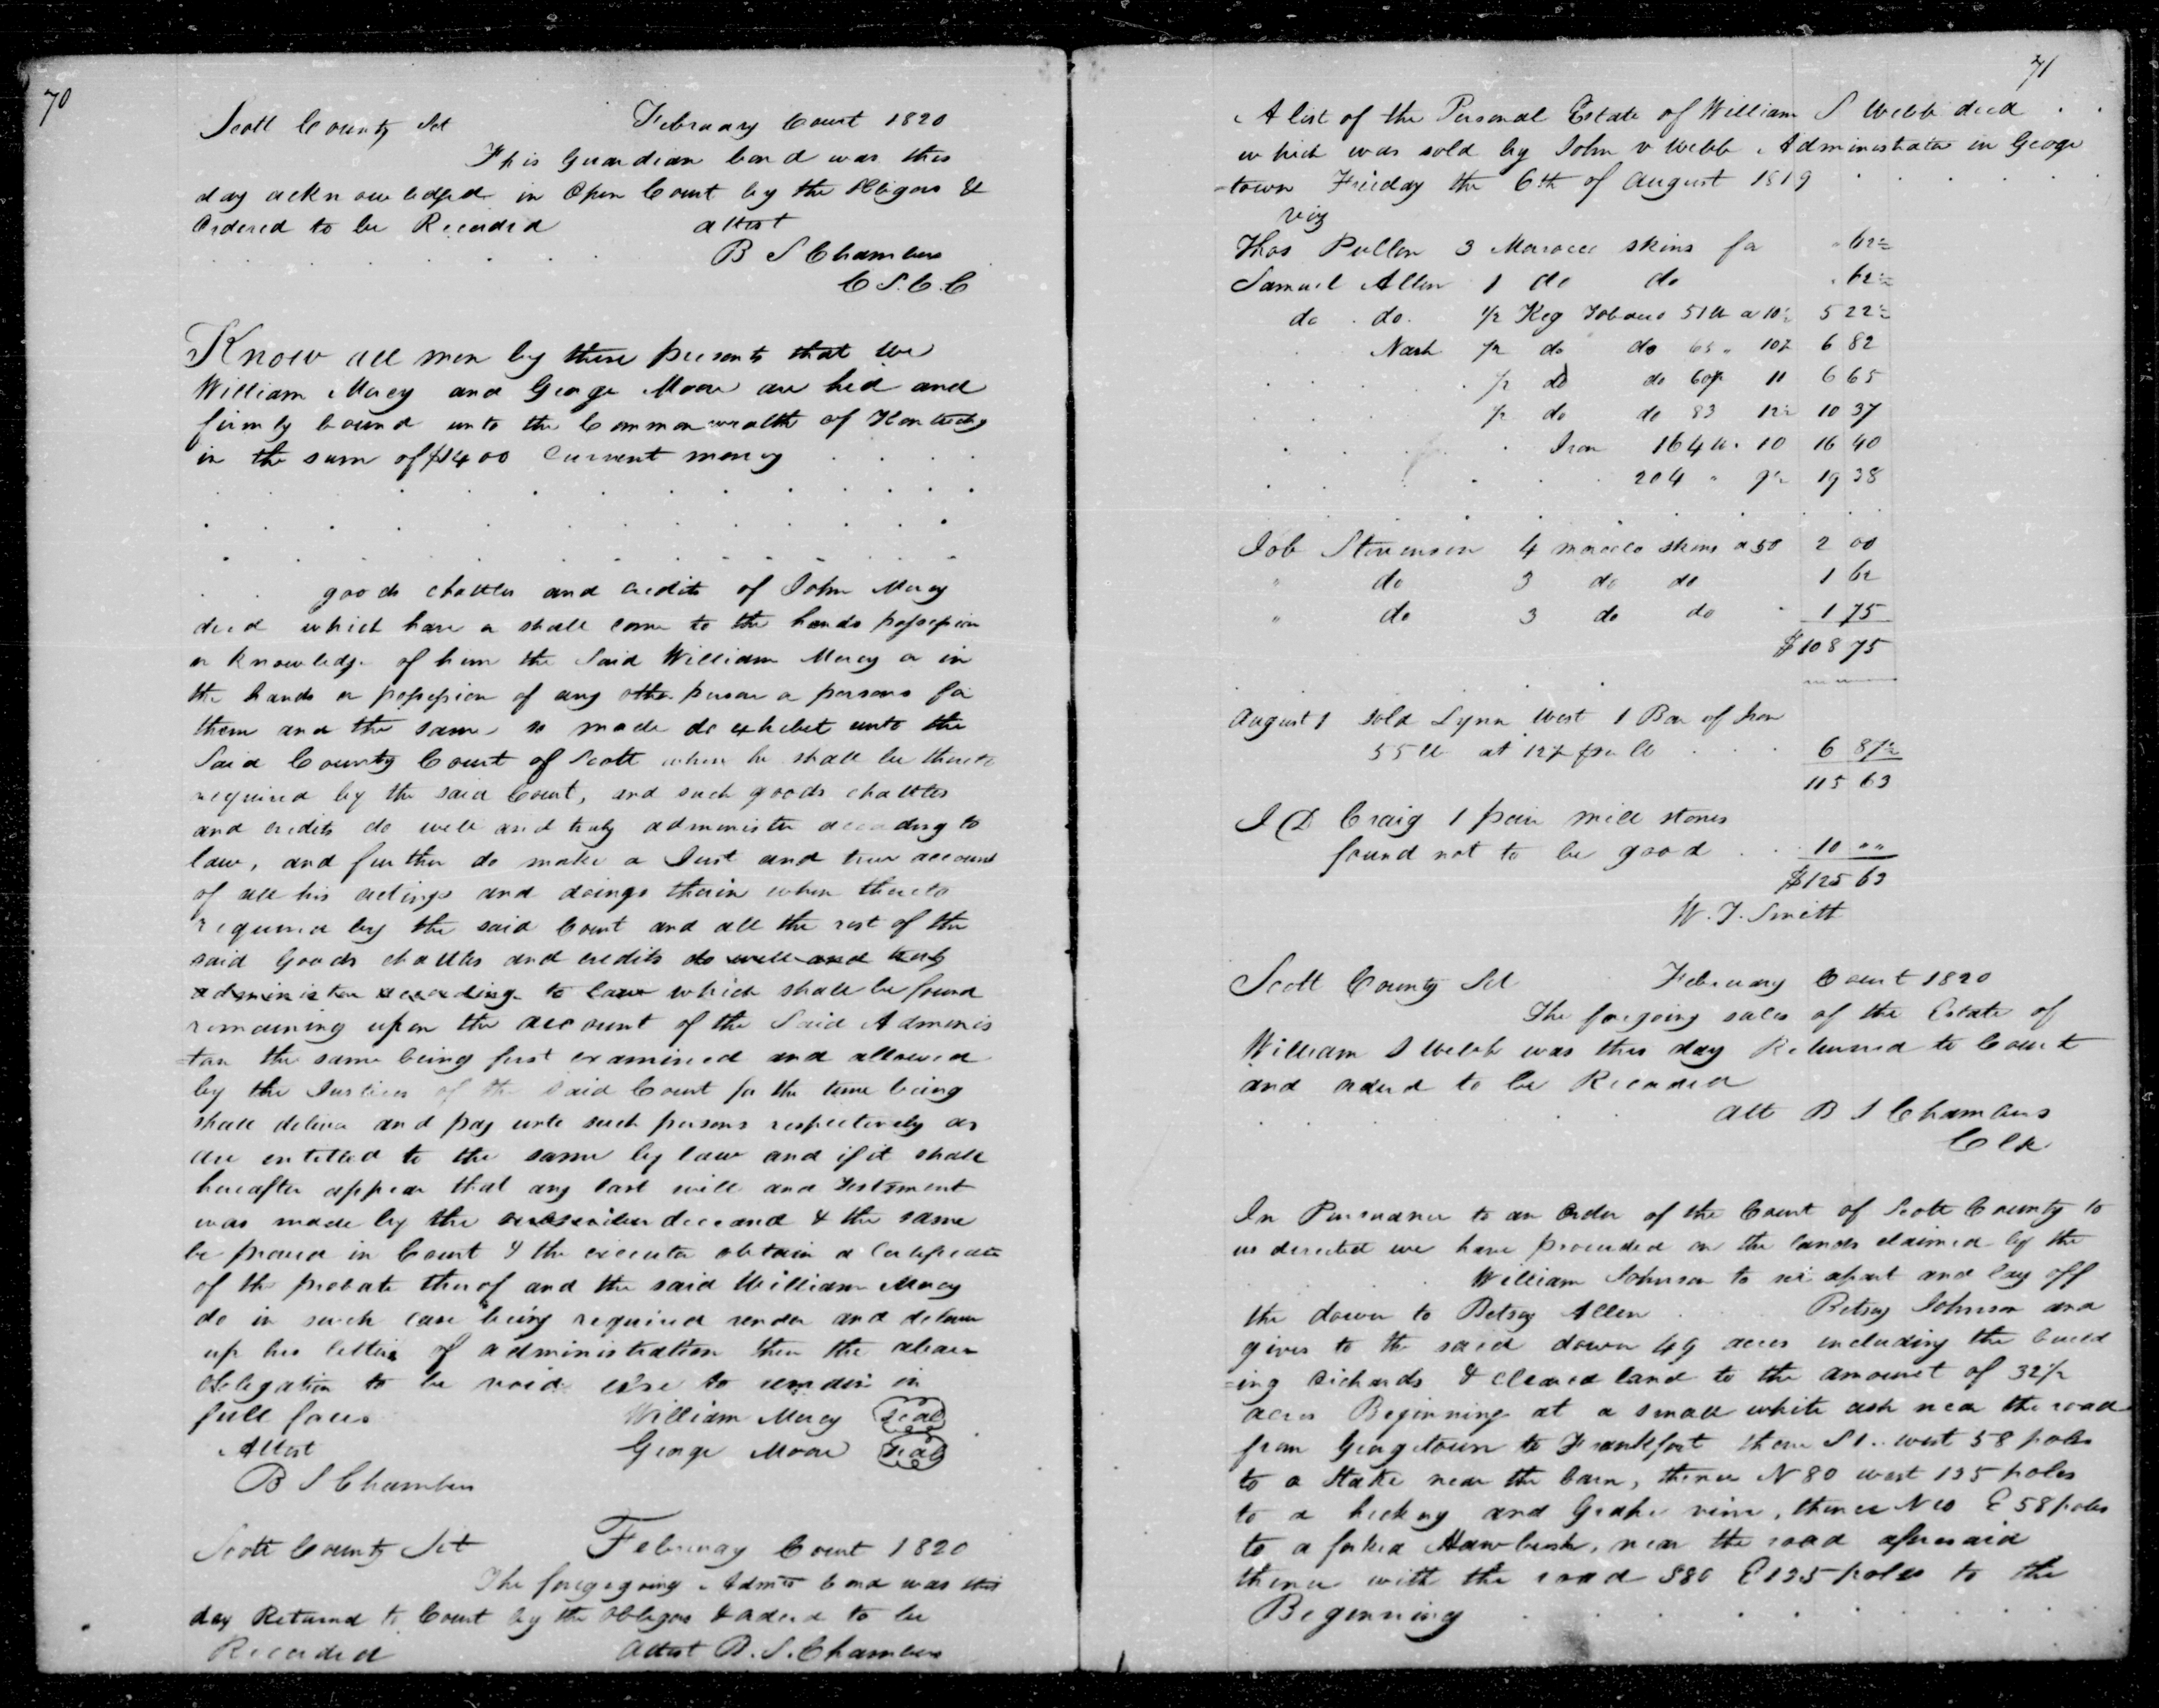 70
Scott County Sct February Court 1820
This Guardian bond was this
day acknowledged in Open Court by the Obligors &
Ordered to be Recorded attest
B S Chambers
C S.C.C
Know all men by these presents that we
William Mercy and George Moore are hed and
firmly bound unto the Commonwealth of Kentucky
in the sum of $1400 Current money
goods chattles and credits of John Mercy
decd which have or shall come to the hands possession
or knowledge of him the Said William Mercy or in
the hands or possession of any other person or persons for
them and the same so made do exhibet unto the
Said County Court of Scott when he shall be thereto
required by the said Court, and such goods chattles
and credits do well and truly administer according to
law, and further do make a Just and true account
of all his actings and doings therein when thereto
required by the said Court and all the rest of the
said Goods chattles and credits do well and truly
administer according to law which shall be found
remaining upon the account of the Said Adminis
=tor the same being first examined and allowed
by the Justices of the Said Court for the time being
shall deliver and pay unto such persons respectively as
are entitled to the same by law and if it shall
hereafter appear that any last will and Testament
was made by the deceasd & the same
be proved in Court & the executor obtain a Certificate
of the probate therof and the said William Mercy
do in such case being required render and deliver
up his letters of administration then the above
Obligation to be void else to remain in
full force William Mercy Seal
Attest George Moore Seal
B S Chambers
Scott County Sct February Court 1820
The foregoing Admrs bond was this
day Returnd to Court by the Obligors & orderd to be
Recorded Attest B. S. Chambers
71
A list of the Personal Estate of William S Webb decd
which was sold by John v Webb Administrator in George
=town Frieday the 6th of August 1819
viz
Thos Pullen 3 Morocco skins for 62½
Samuel Allen 1 do do 62½
do do. ½ Keg Tobacco 51 lb a 10¼ 5 22½
Nash ½ do do 65 " 10½ 6 82
½ do do 60½ 11 6 65
½ do do 83 12½ 10 37
Iron 164 lb. 10 16 40
204 " 9½ 19 38
Job Stevenson 4 morocco skins a 50 2 00
" do 3 do do 1 62
" do 3 do do 1 75
$108 75
August 1 sold Lynn West 1 Bar of Iron
55 lb at 12½ per lb 6 87½
115 63
J D Craig 1 pair mill stones
found not to be good 10 ""
$125 63
W. T. Smith
Scott County Sct February Court 1820
The forgoing sales of the Estate of
William S Webb was this day Returned to Court
and orderd to be Recorded
Att B S Chambers
Clk
In Pursuance to an Order of the Court of Scott County to
us directed we have proceeded on the lands claimed by the
William Johnson to set apart and lay off
the dower to Betsey Allen Betsey Johnson and
gives to the said dower 49 acres including the build
=ing orchards & cleared land to the amount of 32½
acres Beginning at a small white ash near the road
from Georgetown to Frankfort thence S 1.. west 58 poles
to a Stake near the barn, thence N 80 west 135 poles
to a hickory and Grape vine, thence N 10 E 58 poles
to a forked Hawbush, near the road aforesaid
thence with the road S80 E 135 poles to the
Beginning